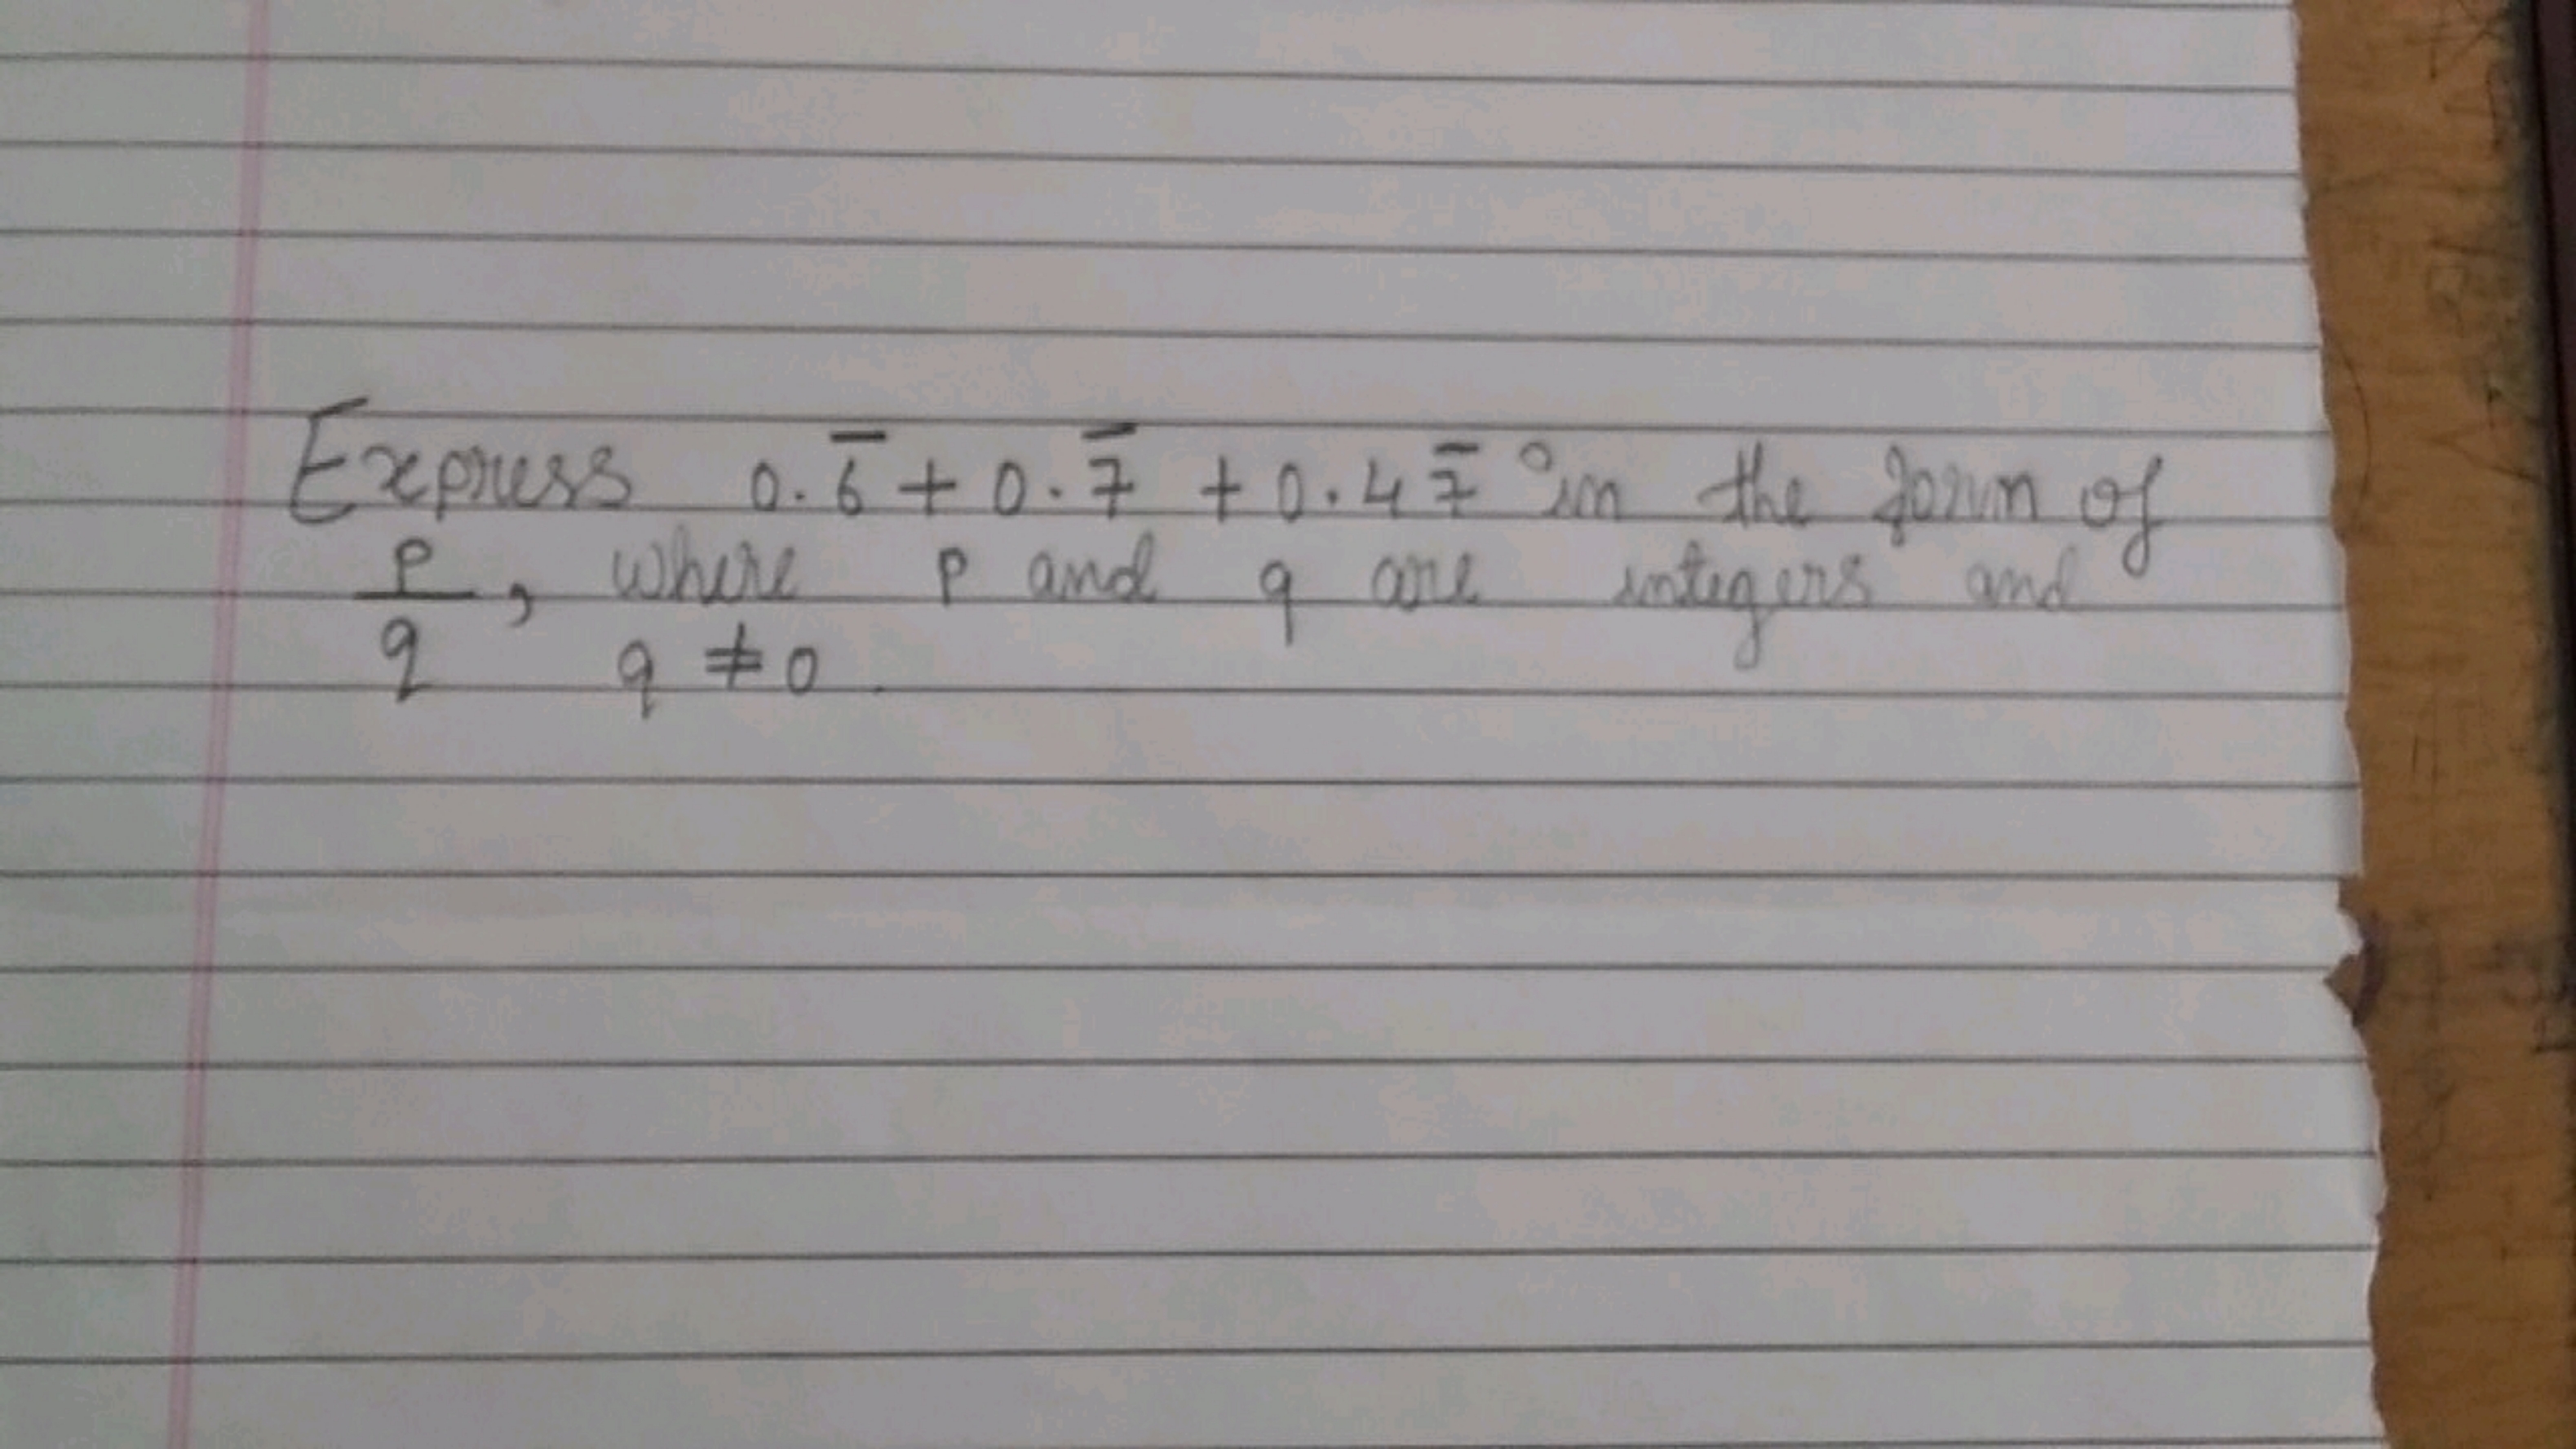 Express 0.6̅ + 0.7̅ + 0.47̅ in the form of
p/q, where p and q are integers and
q ≠ 0.